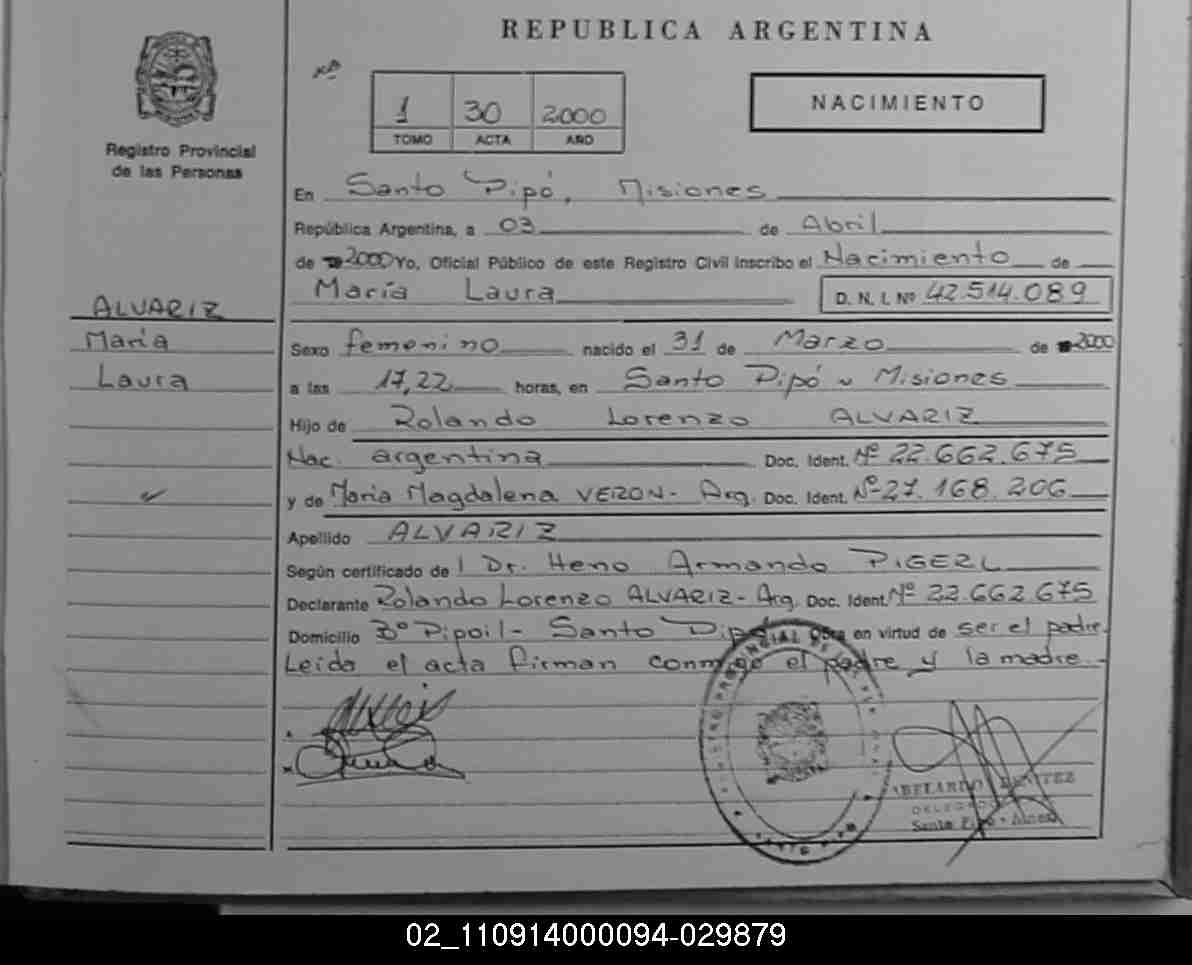 REPUBLICA ARGENTINA
Nº
1 30 2000
TOMO ACTA AÑO
NACIMIENTO
Registro Provincial
de las Personas
En Santo Pipó, Misiones
República Argentina, a 03 de Abril
de 2000 Yo, Oficial Público de este Registro Civil inscribo el Nacimiento de
María Laura D. N. I. Nº 42.514.089
ALVARIZ
María
Laura
Sexo femenino nacido el 31 de Marzo de 2000
a las 17,22 horas, en Santo Pipó - Misiones
Hijo de Rolando Lorenzo ALVARIZ
Nac. argentina Doc. Ident. Nº 22.662.675
y de María Magdalena VERON- Arg. Doc. Ident. Nº 27.168.206
Apellido ALVARIZ
Según certificado de l Dr. Heno Armando PIGERL
Declarante Rolando Lorenzo ALVARIZ- Arg. Doc. Ident. Nº 22.662.675
Domicilio Bº Pipoil- Santo Pipó Obra en virtud de ser el padre.
Leída el acta firman conmigo el padre y la madre.-
ABELARDO BENITEZ
DELEGADO
Santo Pipó - Mnes.
02_110914000094-029879